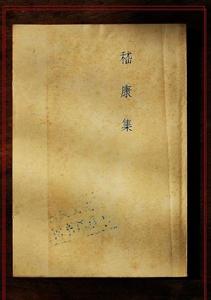 嵇康集